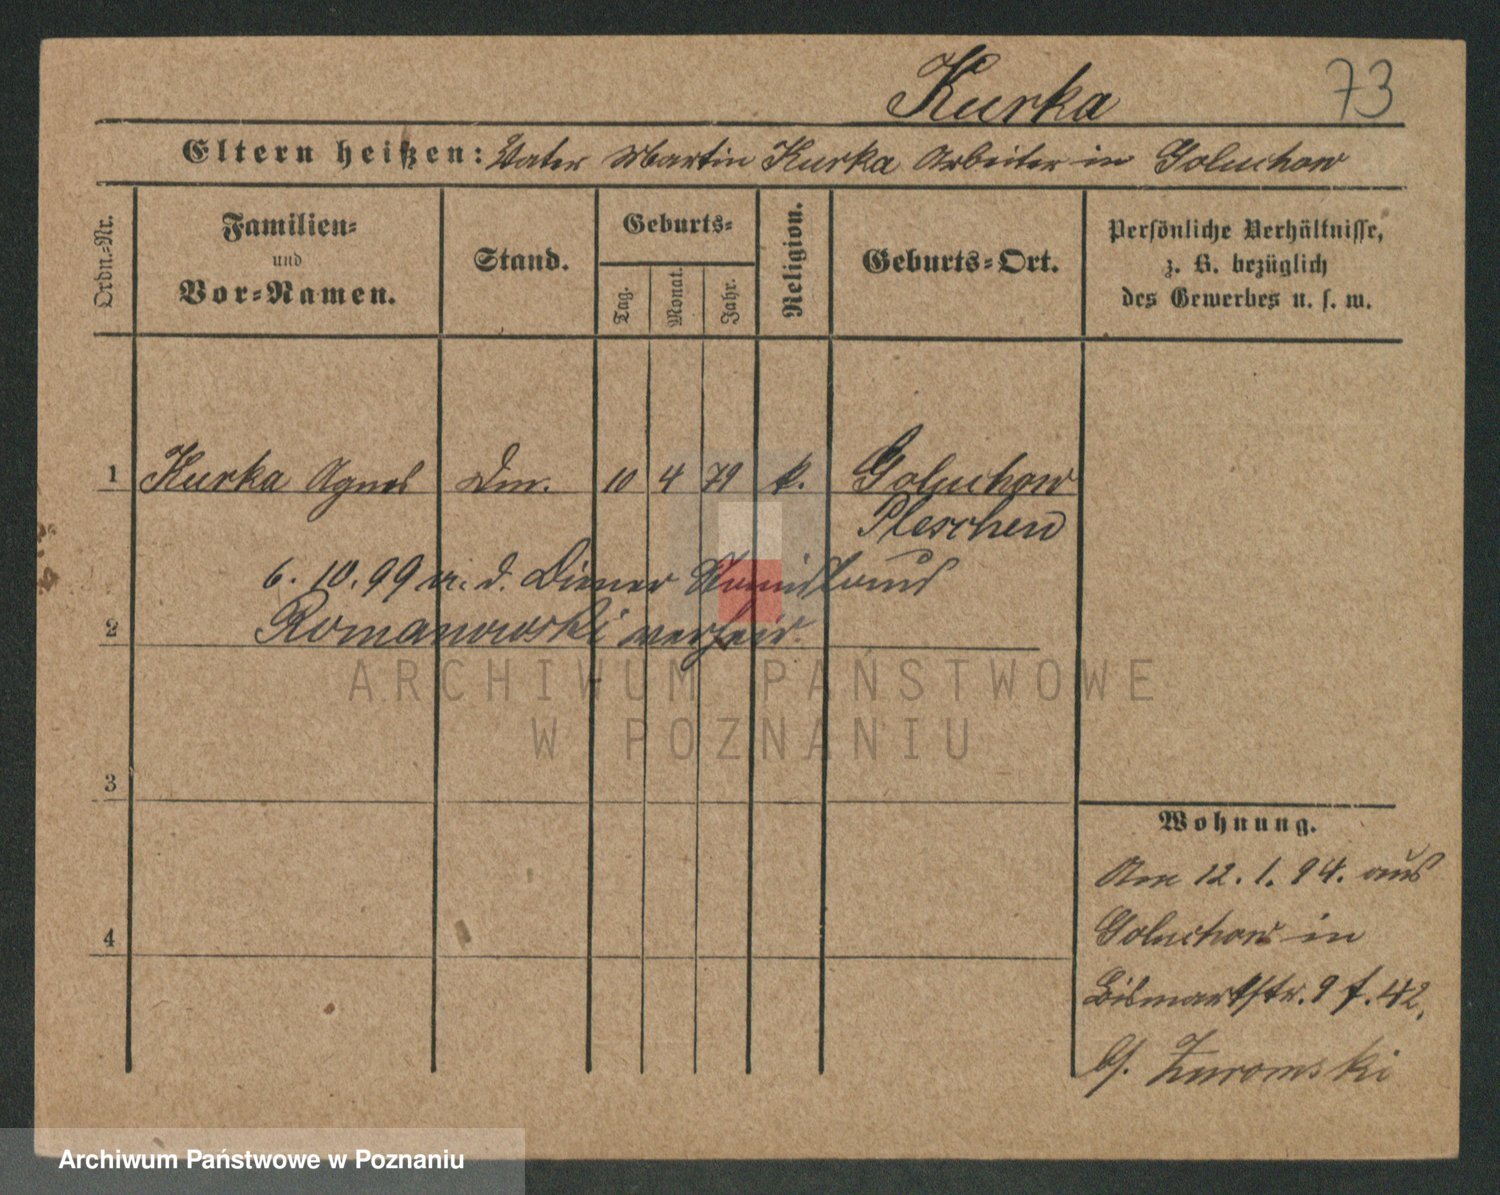 Kurka 73
Eltern heißen: Vater Martin Kurka Arbeiter in Goluchow
Ordn.-Nr.
Familien-
und
Vor-Namen.
Stand.
Geburts-
Tag.
Monat.
Jahr.
Religion.
Geburts-Ort.
Persönliche Verhältnisse,
z. B. bezüglich
des Gewerbes u. s. w.
1 Kurka Agnes Dm. 10 4 79 k. Goluchow
Pleschen
6. 10. 99 m. d. Diener
2 Romanowski verheir.
ARCHIWUM PAŃSTWOWE
W POZNANIU
3
Wohnung.
Am 12. 1. 94. aus
4 Goluchow in
Bismarkstr. 9 f. 42.
Zuromski
Archiwum Państwowe w Poznaniu